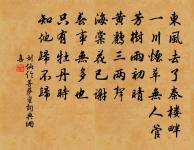 東風去了秦樓畔
一川煙草無人管
芳樹雨初晴
黃鸝三兩聲
海棠花已謝
春事無多也
只有牡丹時
知他歸不歸
劉仙倫菩薩蠻